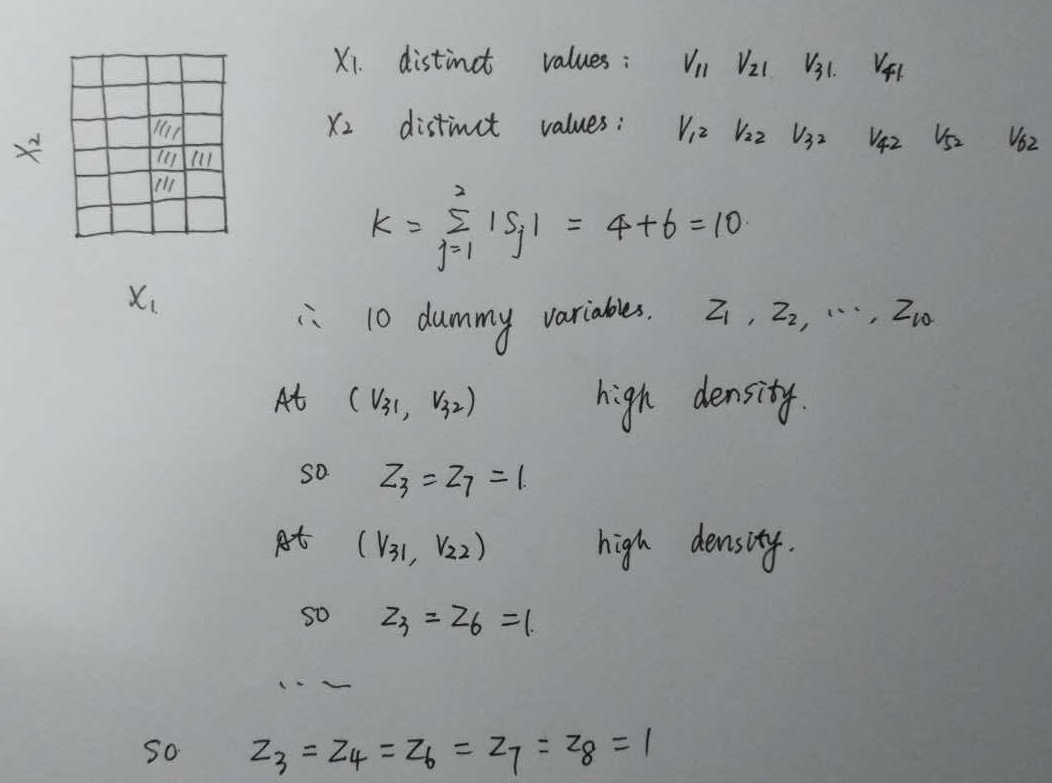 X1. distinct values : V11 V21 V31. V41
X2 distinct values : V12 V22 V32 V42 V52 V62
X2
K = 2 Σ j=1 |Sj| = 4+6 = 10.
X1
∴ 10 dummy variables. Z1 , Z2, ···, Z10
At (V31, V32) high density.
so Z3 = Z7 = 1.
At (V31, V22) high density.
so Z3 = Z6 = 1.
...
so Z3 = Z4 = Z6 = Z7 = Z8 = 1